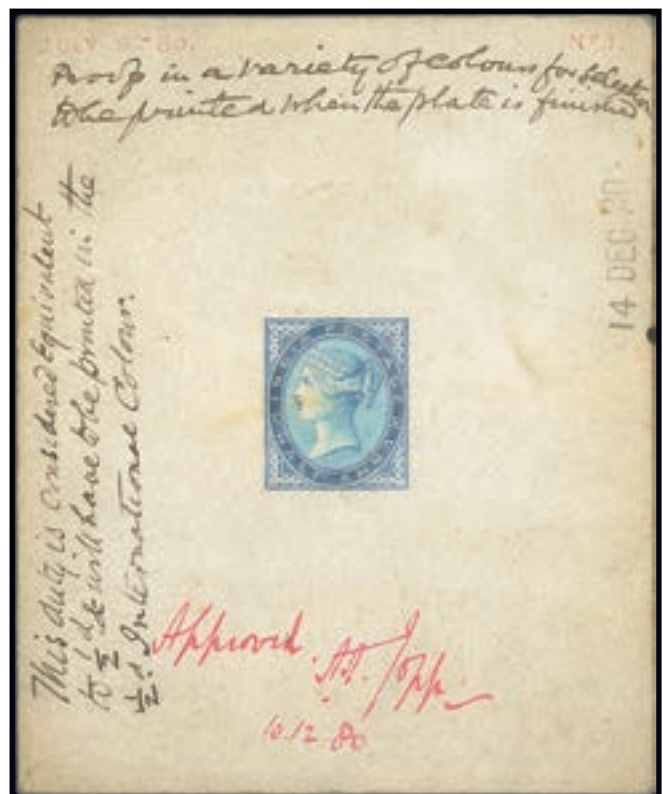 JULY 9. 80.
No 1.
Proofs in a variety of colours for Selection
to be printed when the plate is finished
14 DEC 80.
This duty is considered Equivalent
to ½d & will have to be printed in the
½d International Colour.
Approved.
10.12.80